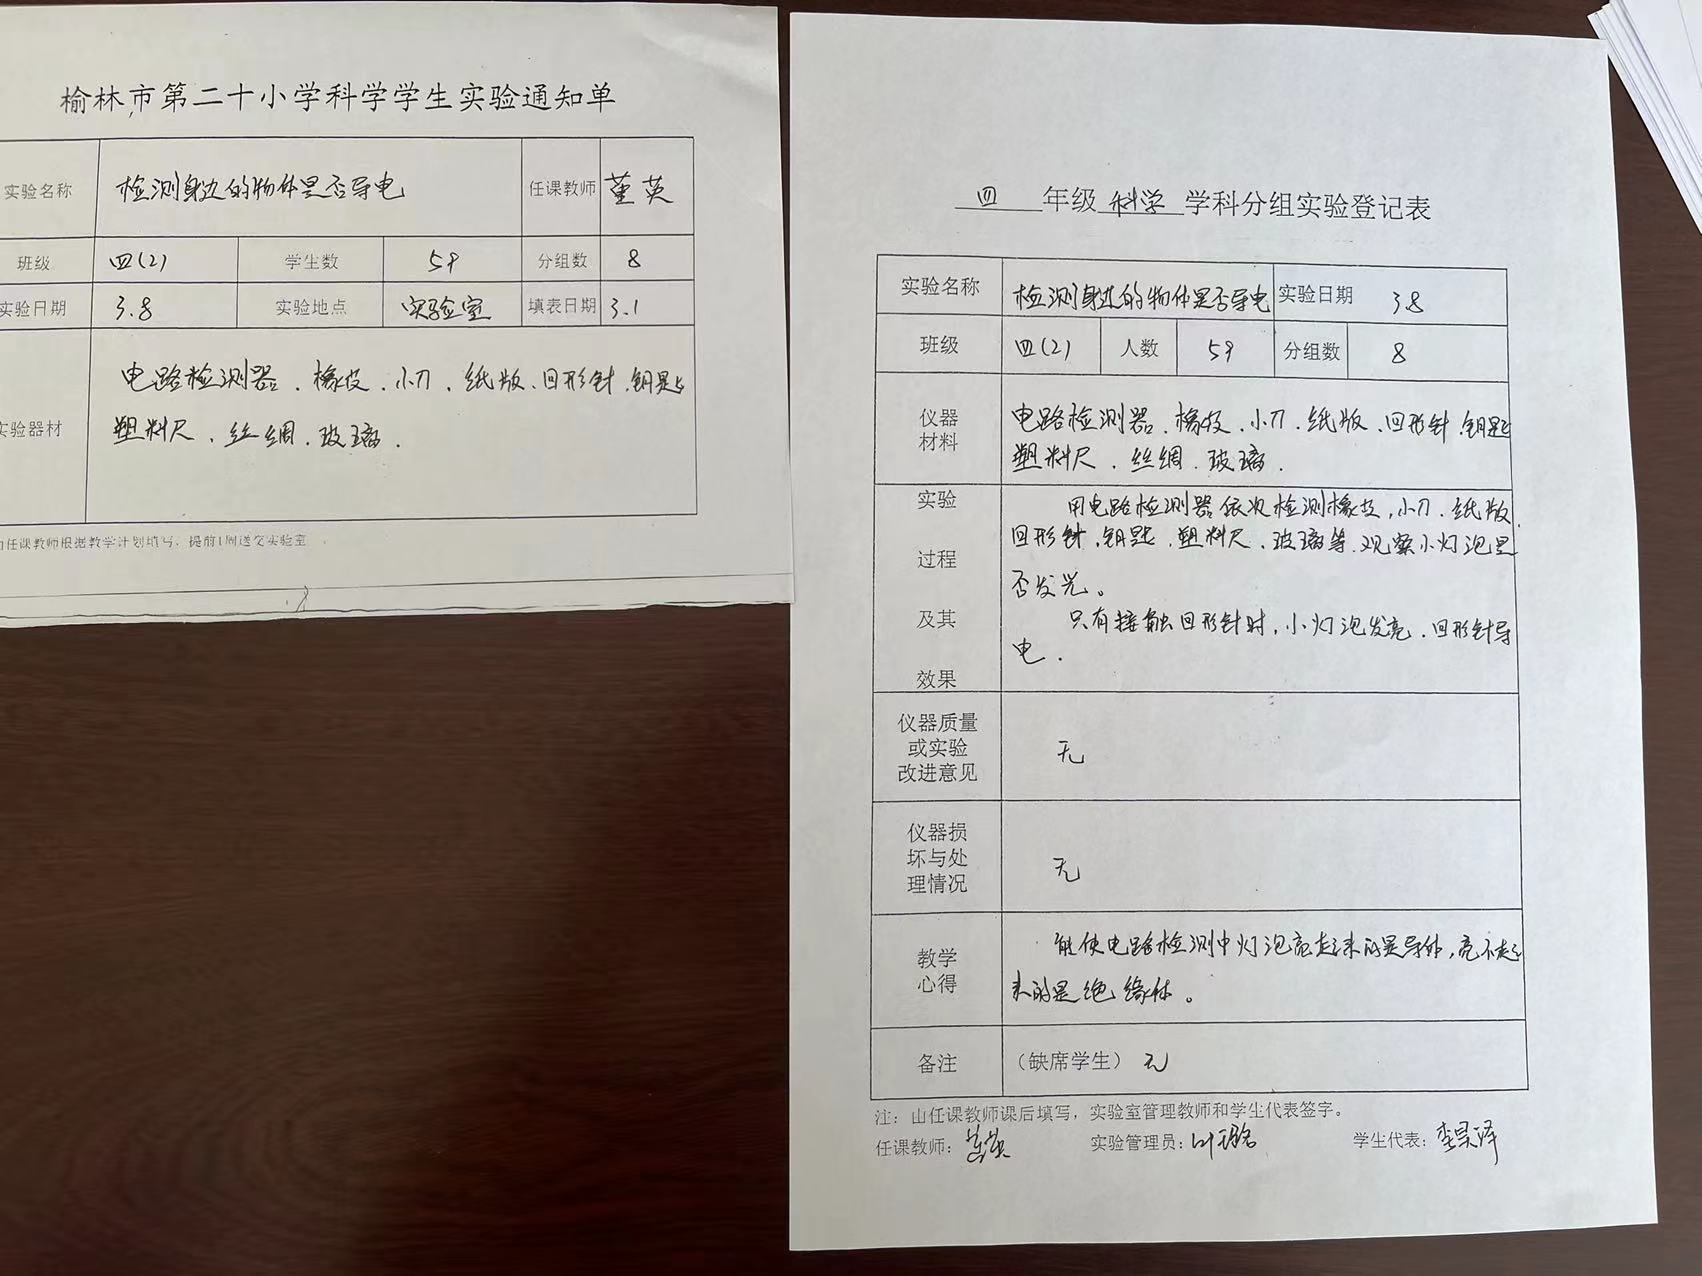 榆林市第二十小学科学学生实验通知单
实验名称 检测身边的物体是否导电 任课教师 董英
班级 四(2) 学生数 59 分组数 8
实验日期 3.8 实验地点 实验室 填表日期 3.1
实验器材
电路检测器、橡皮、小刀、纸版、回形针、钥匙
塑料尺、丝绸、玻璃.
由任课教师根据教学计划填写，提前1周送交实验室
四 年级 科学 学科分组实验登记表
实验名称 检测身边的物体是否导电 实验日期 3.8
班级 四(2) 人数 59 分组数 8
仪器材料
电路检测器、橡皮、小刀、纸版、回形针、钥匙
塑料尺、丝绸、玻璃.
实验过程及其效果
用电路检测器依次检测橡皮,小刀、纸版、
回形针、钥匙、塑料尺、玻璃等,观察小灯泡是
否发光。
只有接触回形针时,小灯泡发亮、回形针导
电.
仪器质量
或实验
改进意见
无
仪器损
坏与处
理情况
无
教学
心得
能使电路检测中灯泡亮起来的是导体,亮不起
来的是绝缘体。
备注 (缺席学生) 无
注：由任课教师课后填写，实验室管理教师和学生代表签字。
任课教师: 董英 实验管理员: 学生代表: 李昊泽